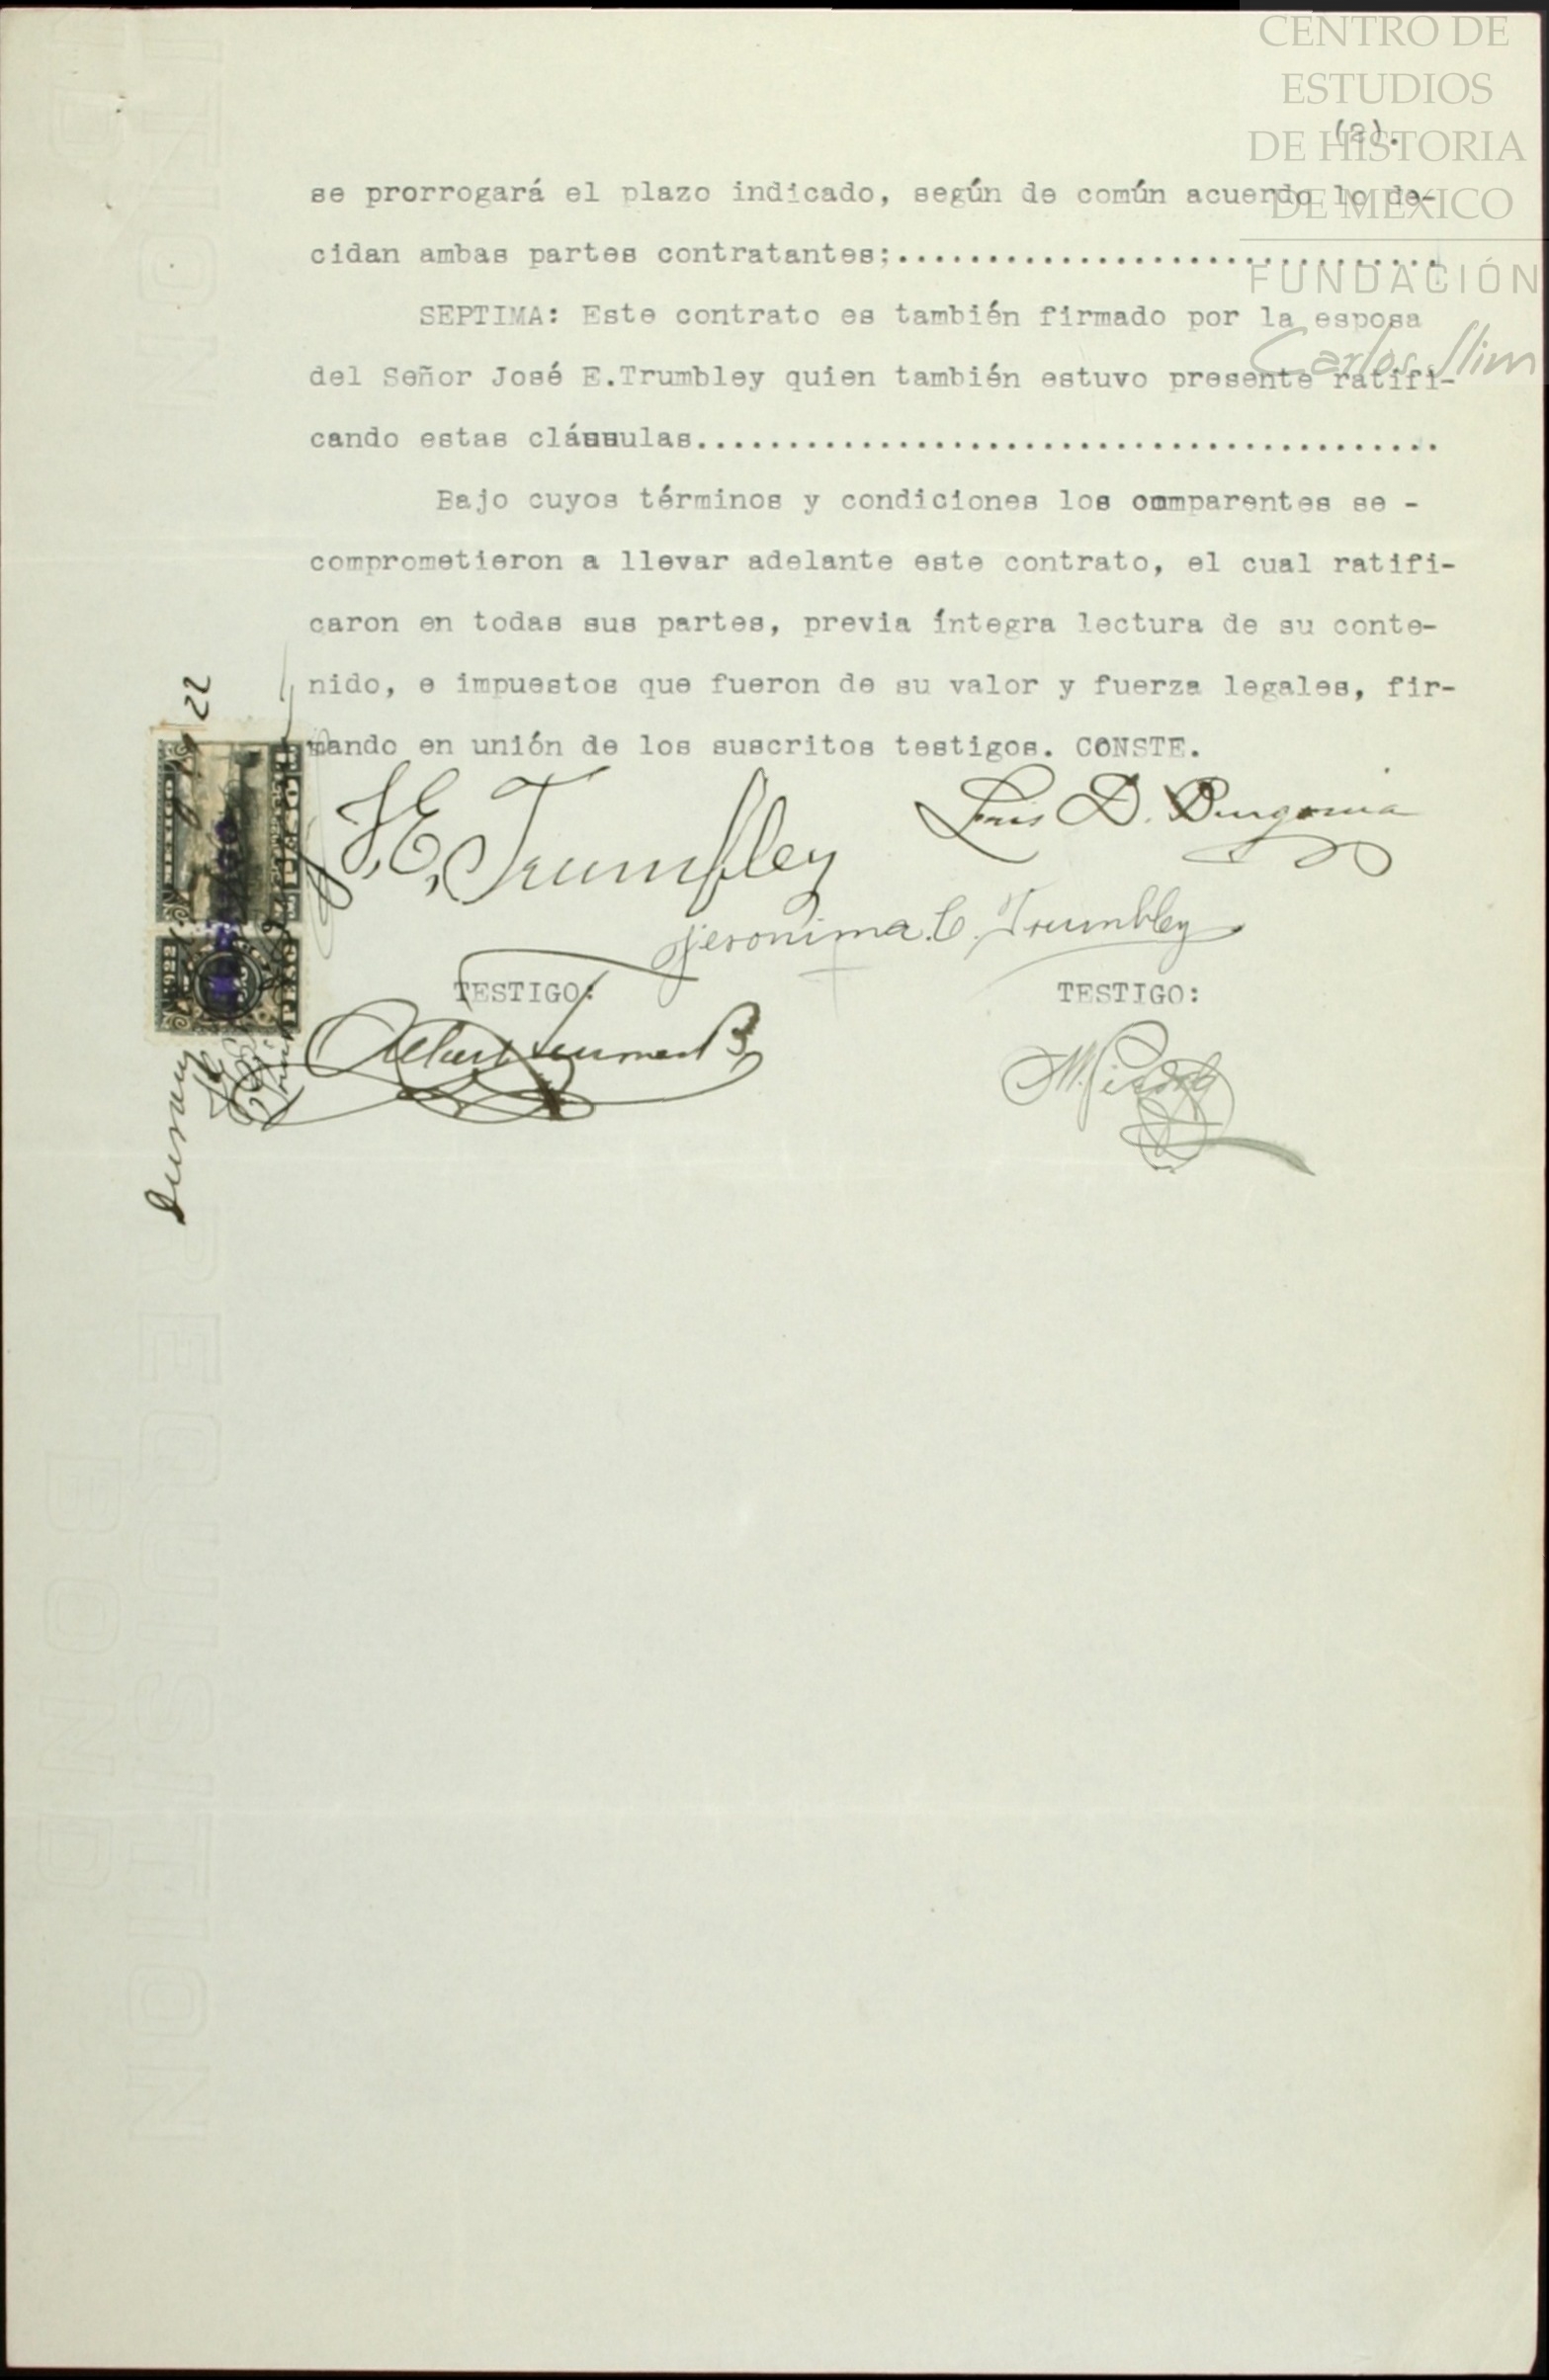 CENTRO DE
ESTUDIOS
DE HISTORIA
DE MEXICO
FUNDACIÓN
Carlos Slim
(2).
se prorrogará el plazo indicado, según de común acuerdo lo de-
cidan ambas partes contratantes;..............................
SEPTIMA: Este contrato es también firmado por la esposa
del Señor José E.Trumbley quien también estuvo presente ratifi-
cando estas cláusulas.........................................
Bajo cuyos términos y condiciones los comparentes se -
comprometieron a llevar adelante este contrato, el cual ratifi-
caron en todas sus partes, previa íntegra lectura de su conte-
nido, e impuestos que fueron de su valor y fuerza legales, fir-
mando en unión de los suscritos testigos. CONSTE.
J.E. Trumbley
Luis D.
Jeronima C. Trumbley
TESTIGO:
TESTIGO:
22
1922
REQUISITION
BOND